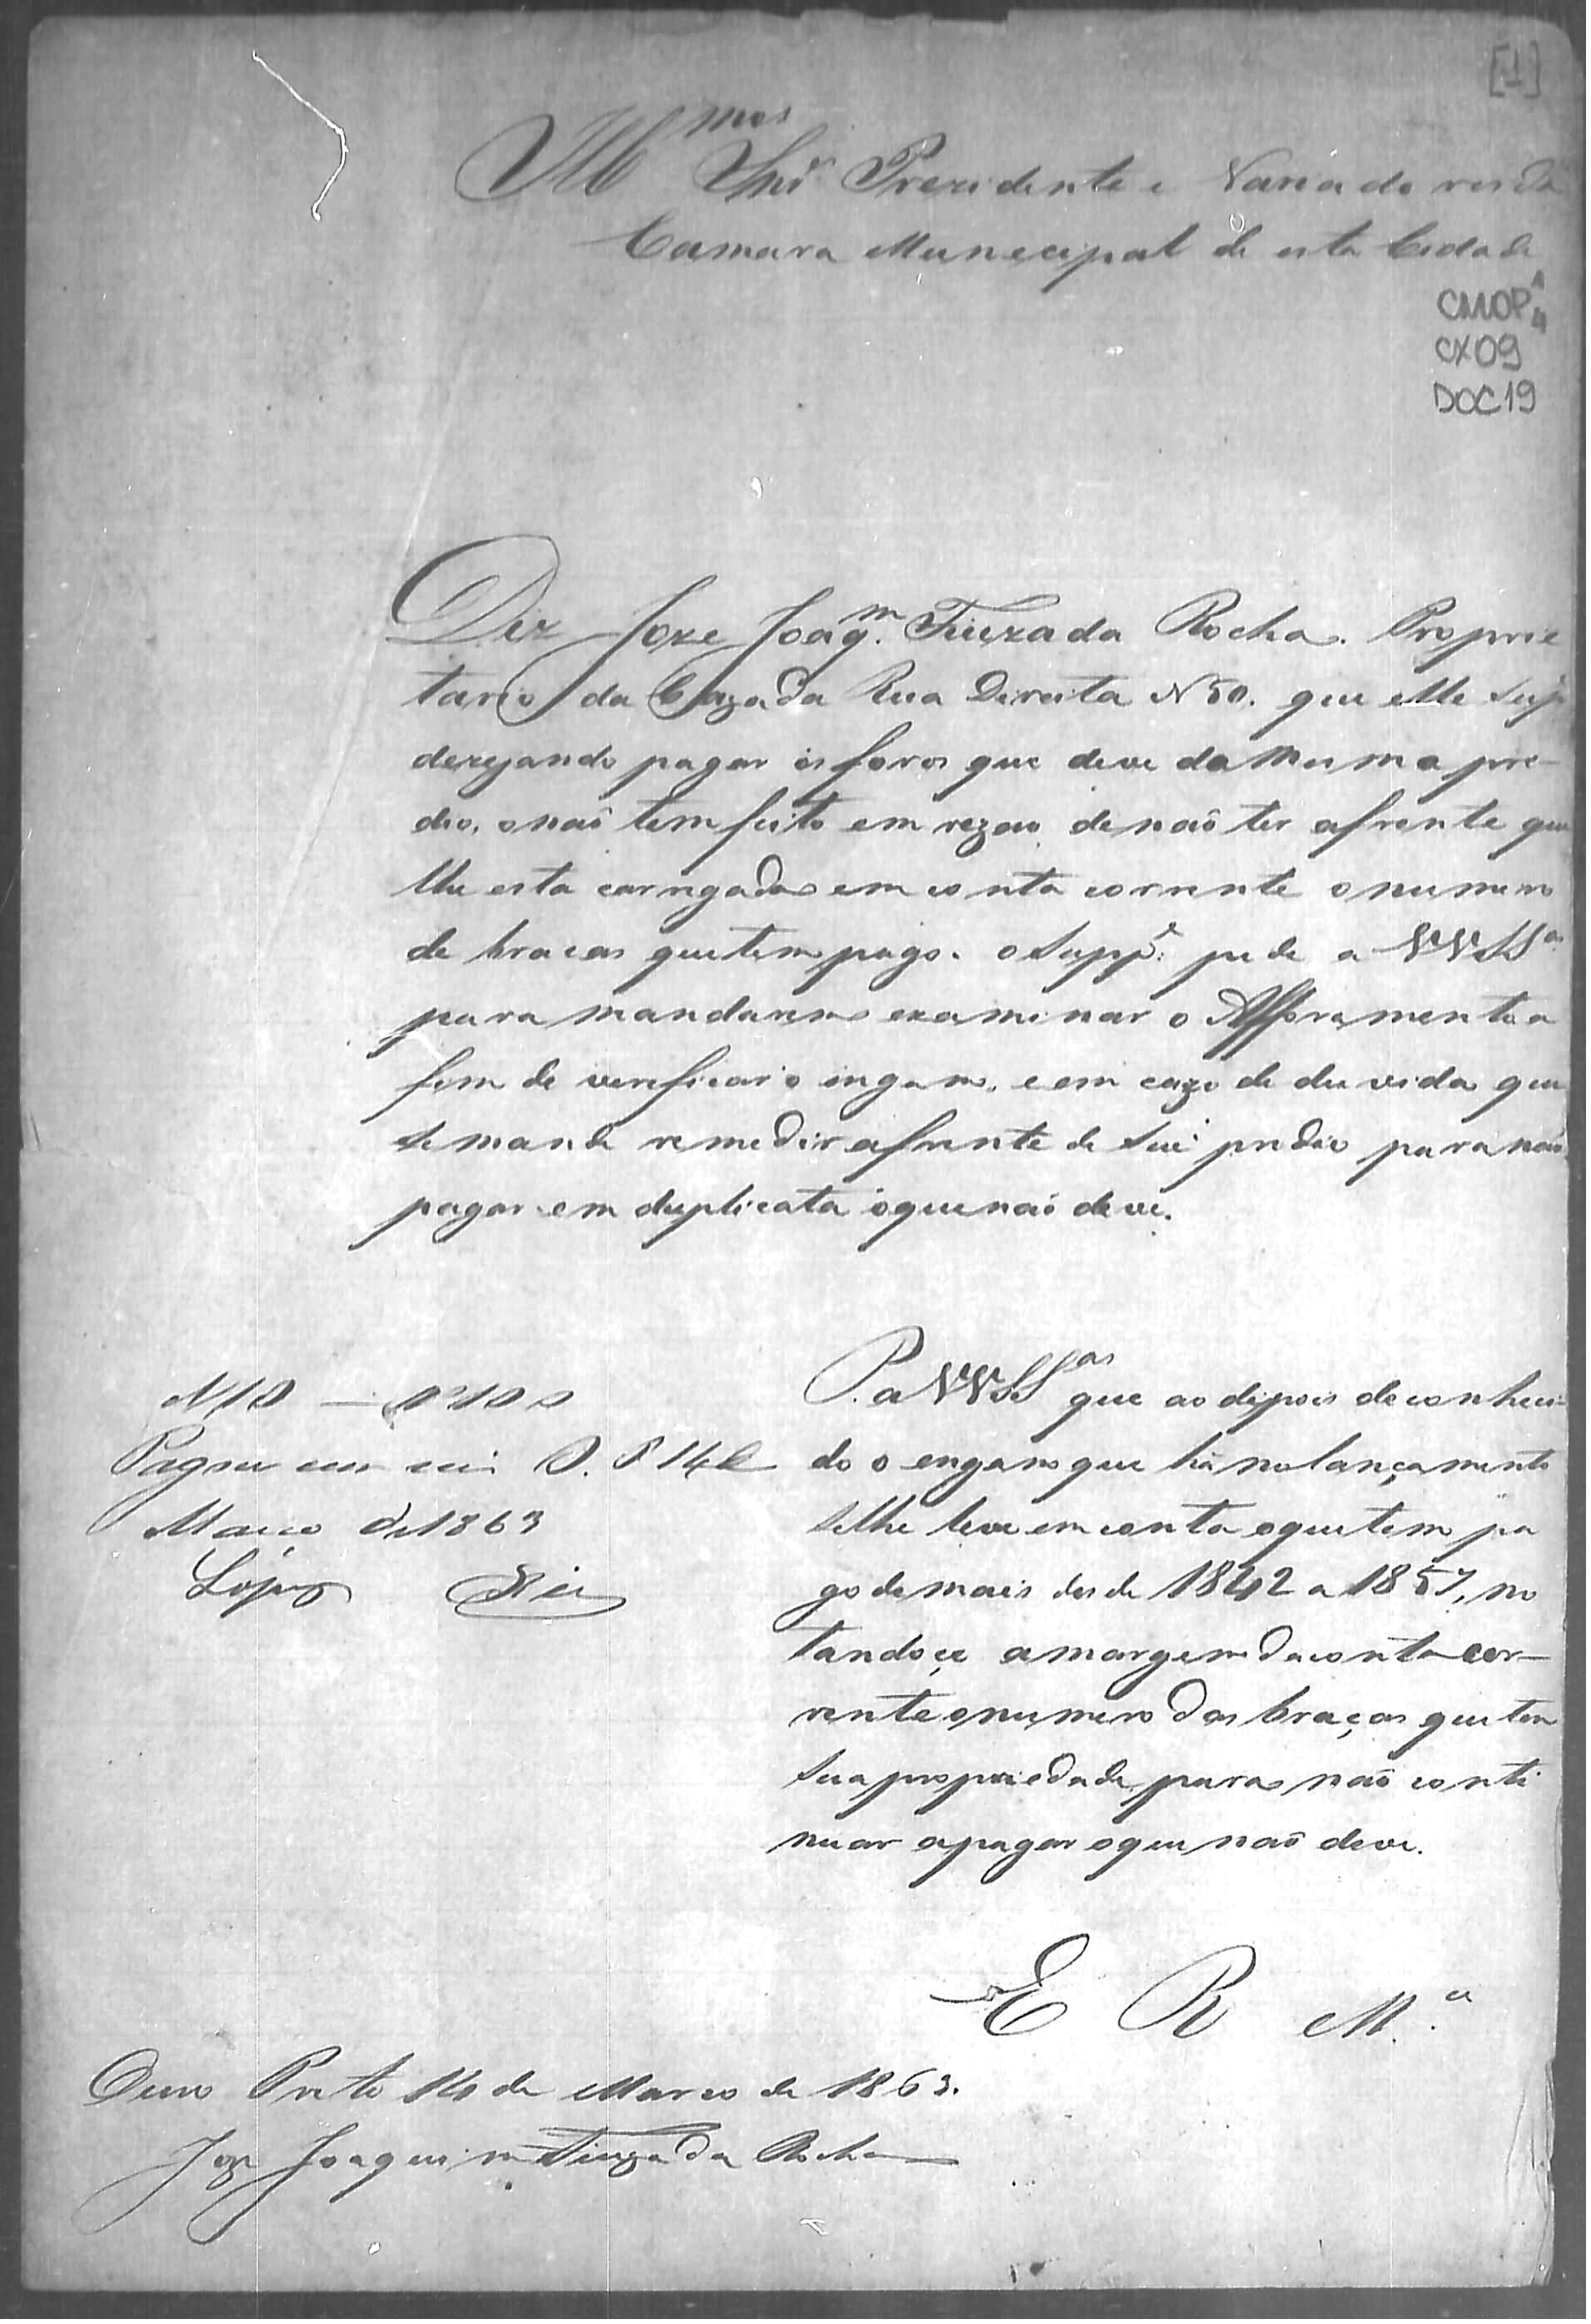 [1]
Ill.mos Snr Prezidente e Variadores da
Camara Munecipal de esta Cedade
CMOP
CX09
DOC19
Diz Joze Joaq.m Fiuza da Rocha. Proprie
tario da Caza da Rua Dereita N 50. que elle Sup
dezejando pagar os foros que deve da mesma pre-
dio, o não tem feito em rezão de não ter a frente que
lhe esta carregada em conta corrente o numero
de bracas que tem pago. o Supp.e pede a VVSS.as
para mandarem examinar o Afforamento a
fim de verificar o ingano, e em cazo de duvida que
se mande remedir a frente de seu predio para não
pagar em duplicata o que não deve.
P. a VVSS.as que ao depois de conheci-
do o engano que há no lançamento
se lhe leve em conta o que tem pa
go de mais desde 1842 a 1857, no
tandoçe a margem da conta cor-
rente o numero das braças que tem
sua propriedade para não conti
nuar a pagar o que não deve.
E R M.ce
N 10 — 200
Pagou rs. O. P. 14 de
Março de 1863
Lopes
Ouro Preto 14 de Março de 1863.
Joze Joaquim Fiuza da Rocha